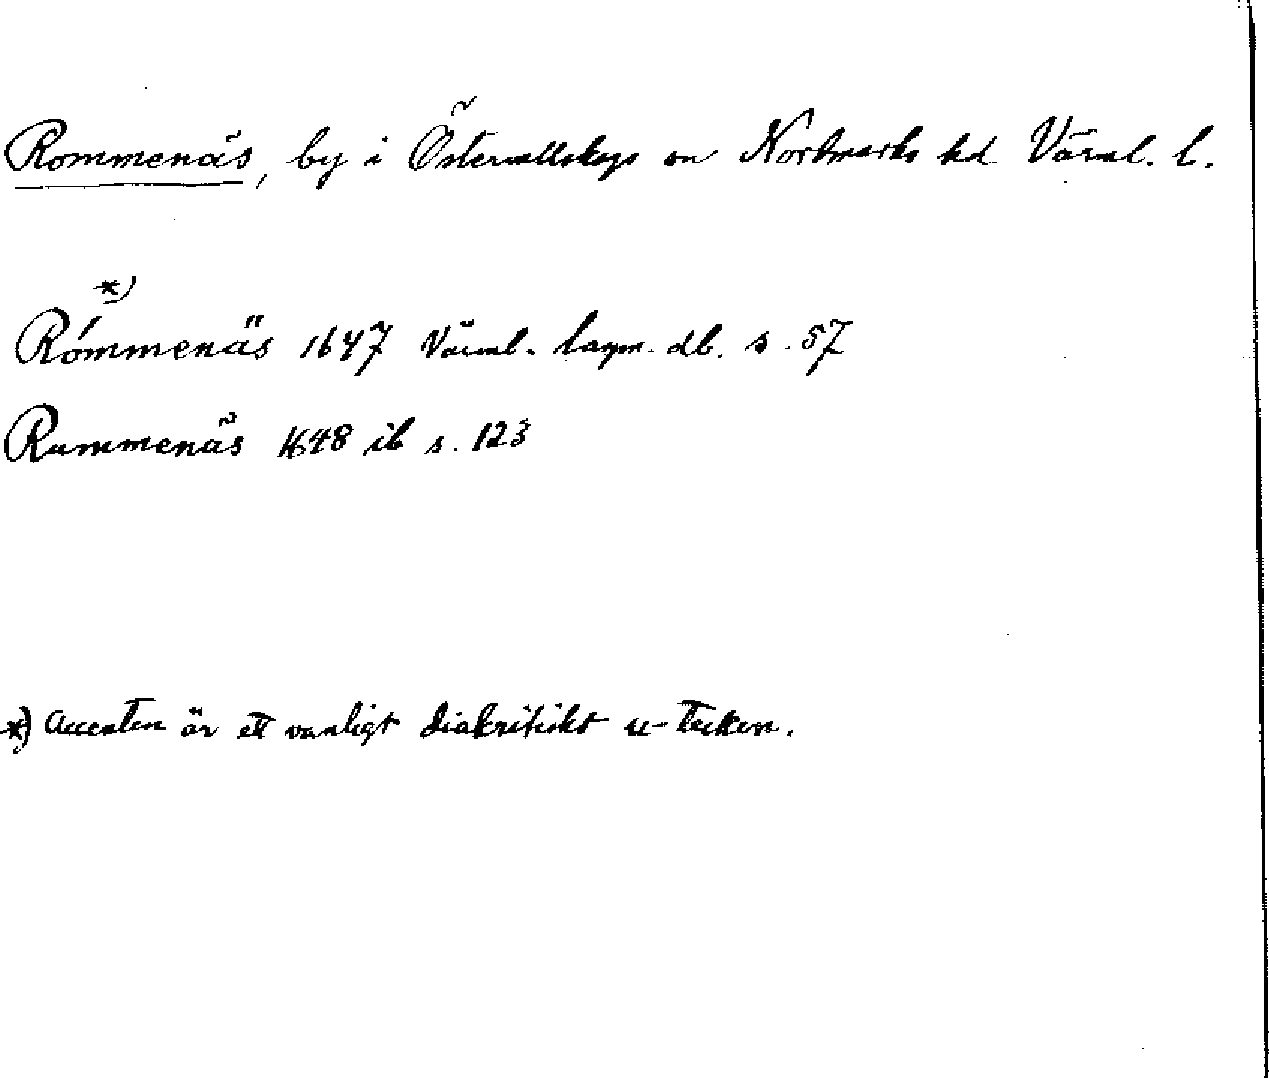 Rommenäs, by i Östervallskogs sn Nordmarks hd Värml. l.
*)
Rómmenäs 1647 Värml. lagm. db. s. 57
Rummenäs 1648 ib s. 123
*) Accenten är ett vanligt diakritiskt u-tecken.